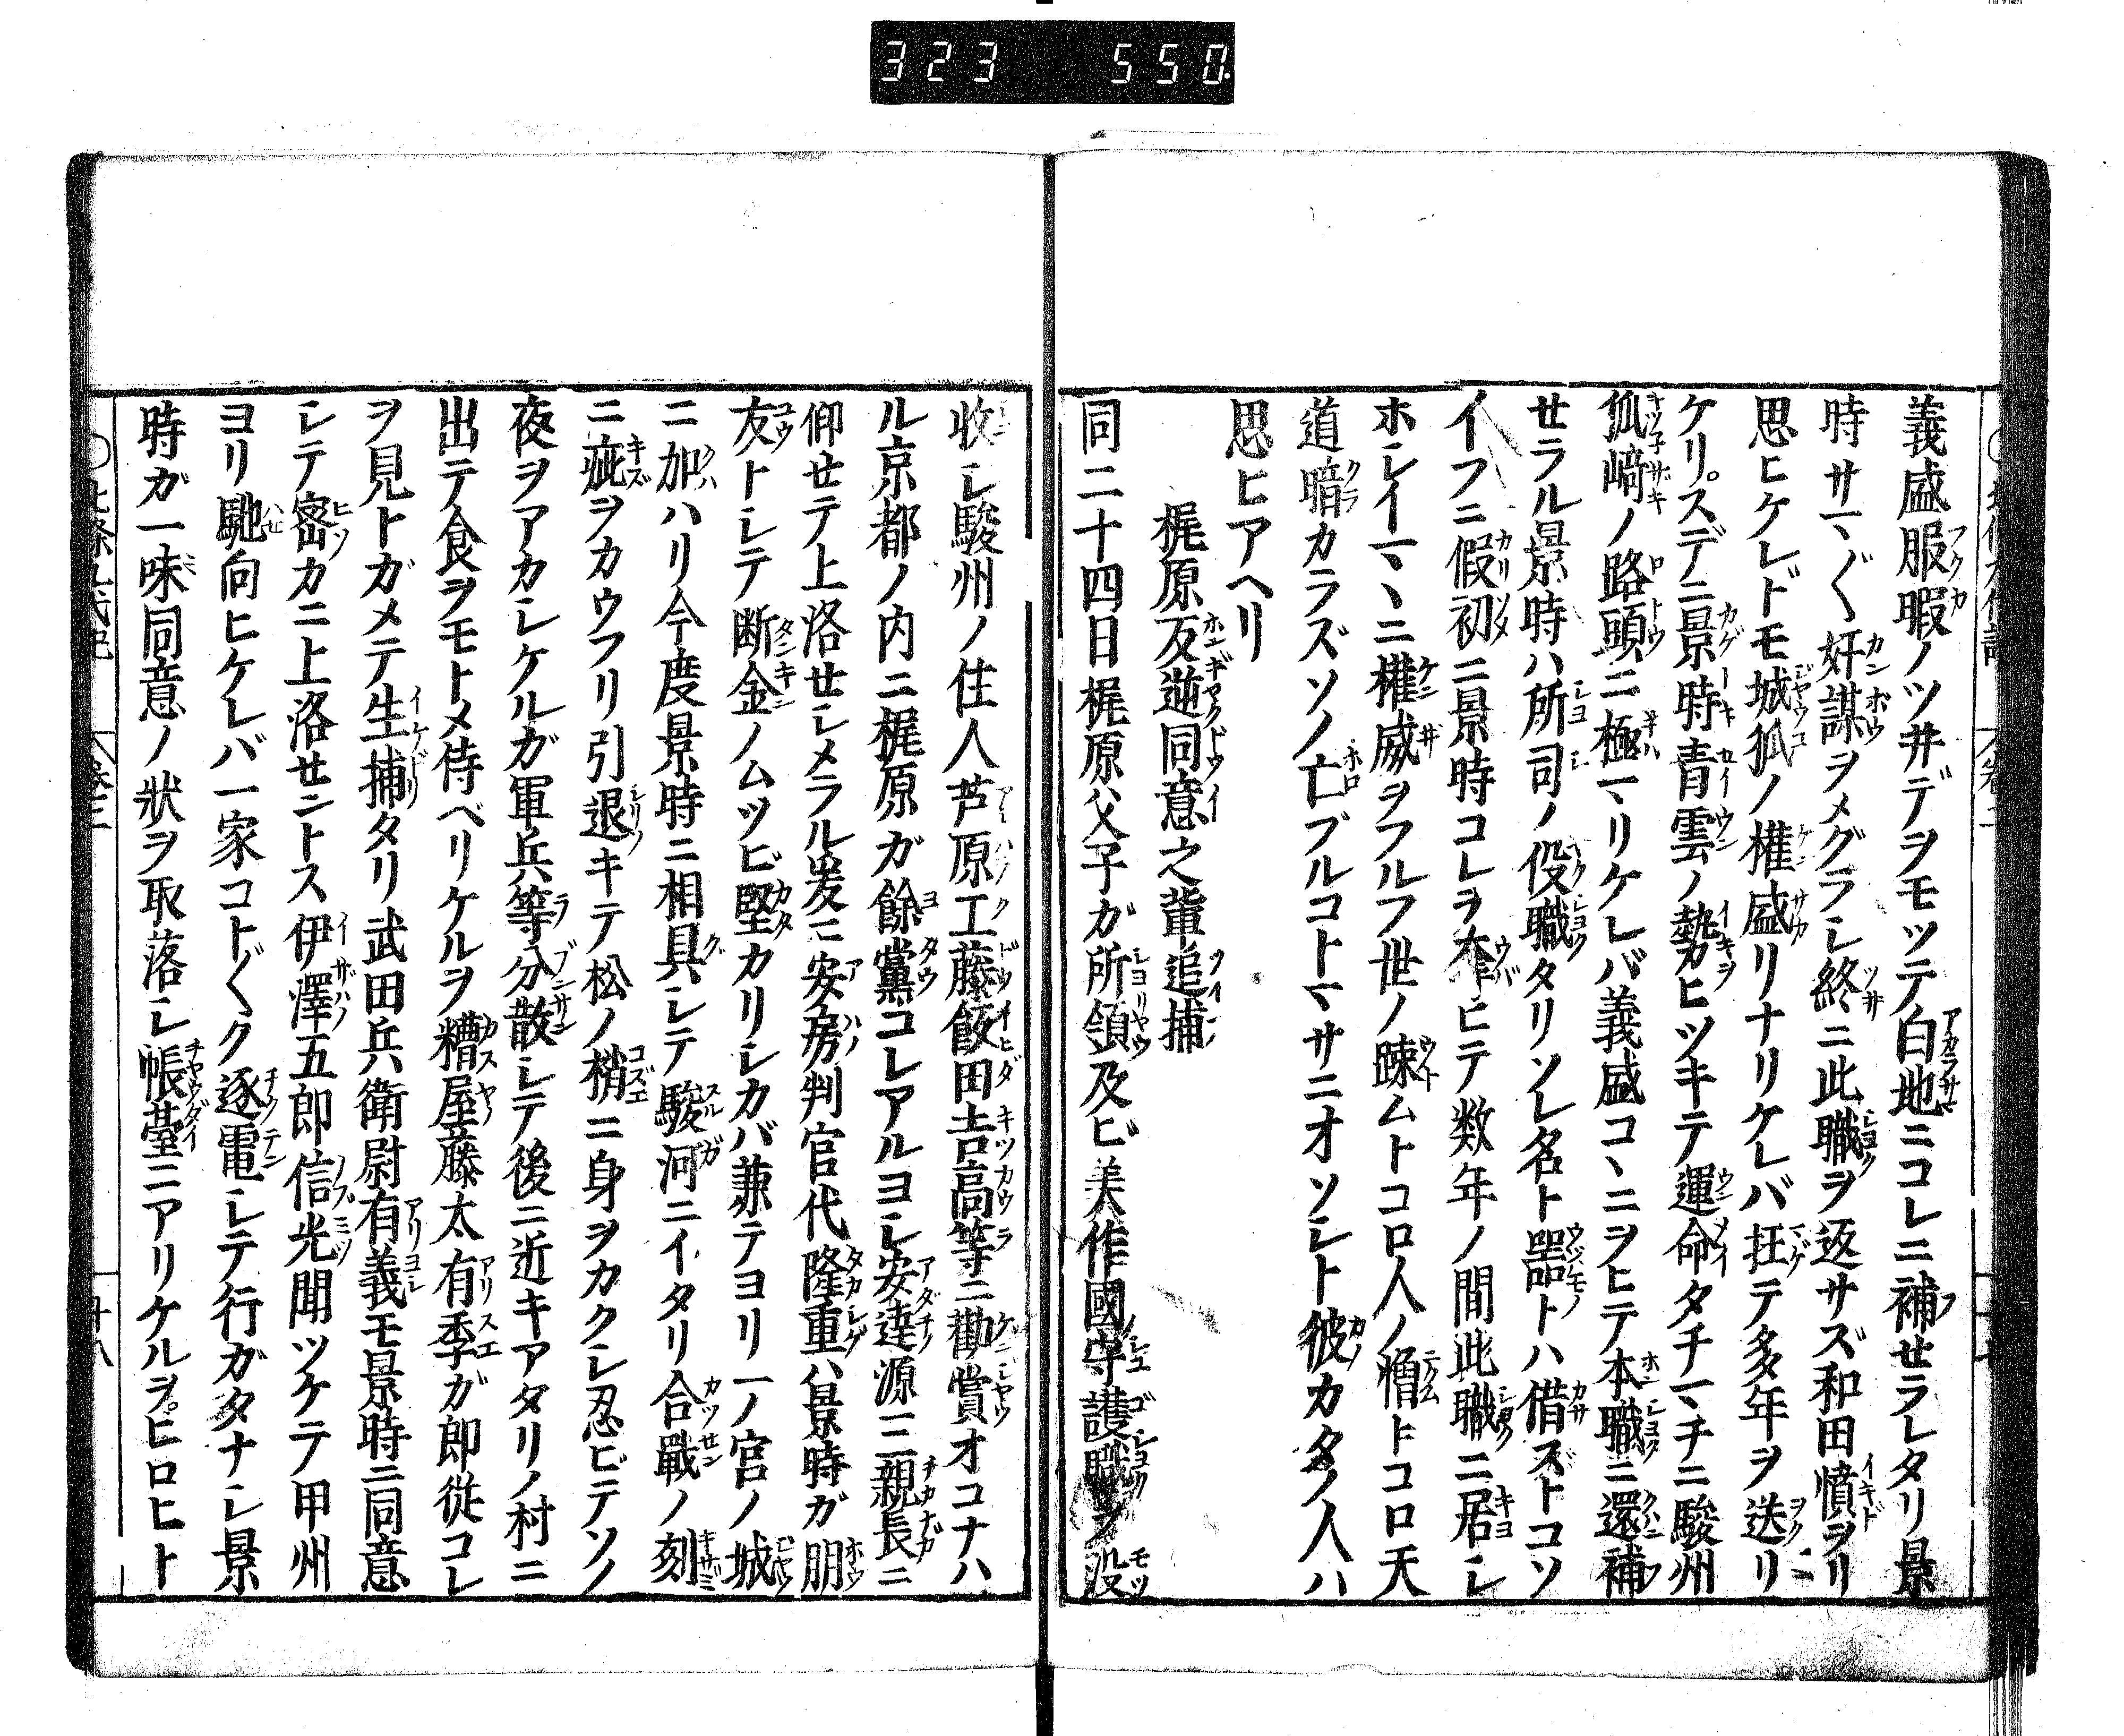 323 550
義盛服暇ノツ井デヲモツテ白地ニコレニ補せラレタリ景
時サマ〲奸謀ヲメグラシ終ニ此職ヲ返サズ和田憤ヲリ
思ヒケレドモ城狐ノ權盛リナリケレバ枉テ多年ヲ送リ
ケリ。スデニ景時青雲ノ勢カヒツキテ運命タチマチニ駿州
狐﨑ノ路頭ニ極マリケレバ義盛コヽニヲヒテ本職ニ還補
せラル景時ハ所司ノ役職タリソレ名ト器トハ借ズトコソ
イフニ假初ニ景時コレヲ奪ヒテ数年ノ間此職ニ居シ
ホシイマヽニ權威ヲフルフ世ノ踈ムトコロ人ノ憎トコロ天
道暗カラズソノ亡ブルコトマサニオソシト彼カタノ人ハ
思ヒアヘリ
梶原反逆同意之輩追捕
同二十四日梶原父子ガ所領及ビ美作國守護職ヲ没
收シ駿州ノ住人芦原工藤飯田吉高等ニ勸賞オコナハ
ル京都ノ内ニ梶原ガ餘黨コレアルヨシ安達源三親長ニ
仰せテ上洛せシメラル爰ニ安房判官代隆重ハ景時ガ朋
友トシテ断金ノムツビ堅カリシカバ兼テヨリ一ノ官ノ城
ニ加ハリ今度景時ニ相具シテ駿河ニイタリ合戰ノ刻
ニ疵ヲカウフリ引退キテ松ノ梢ニ身ヲカクシ忍ビテソノ
夜ヲアカシケルガ軍兵等分散シテ後ニ近キアタリノ村ニ
出テ食ヲモトメ侍ベリケルヲ糟屋藤太有季ガ郎從コレ
ヲ見トガメテ生捕タリ武田兵衛尉有義モ景時ニ同意
シテ密カニ上洛せントス伊澤五郎信光聞ツケテ甲州
ヨリ馳向ヒケレバ一家コト〲ク逐電シテ行ガタナシ景
時ガ一味同意ノ狀ヲ取落シ帳臺ニアリケルヲ。ヒロヒト